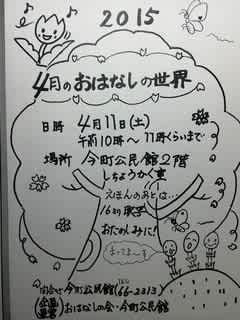 2015
4月のおはなしの世界
日時 4月11日(土)
午前10時〜11時くらいまで
場所 今町公民館2階
しちょうかく室
えほんのあとは…
おたのしみに!
まってま〜す
問合せ 今町公民館(TEL66-2313)
企画 運営 おはなしの会・今町公民館